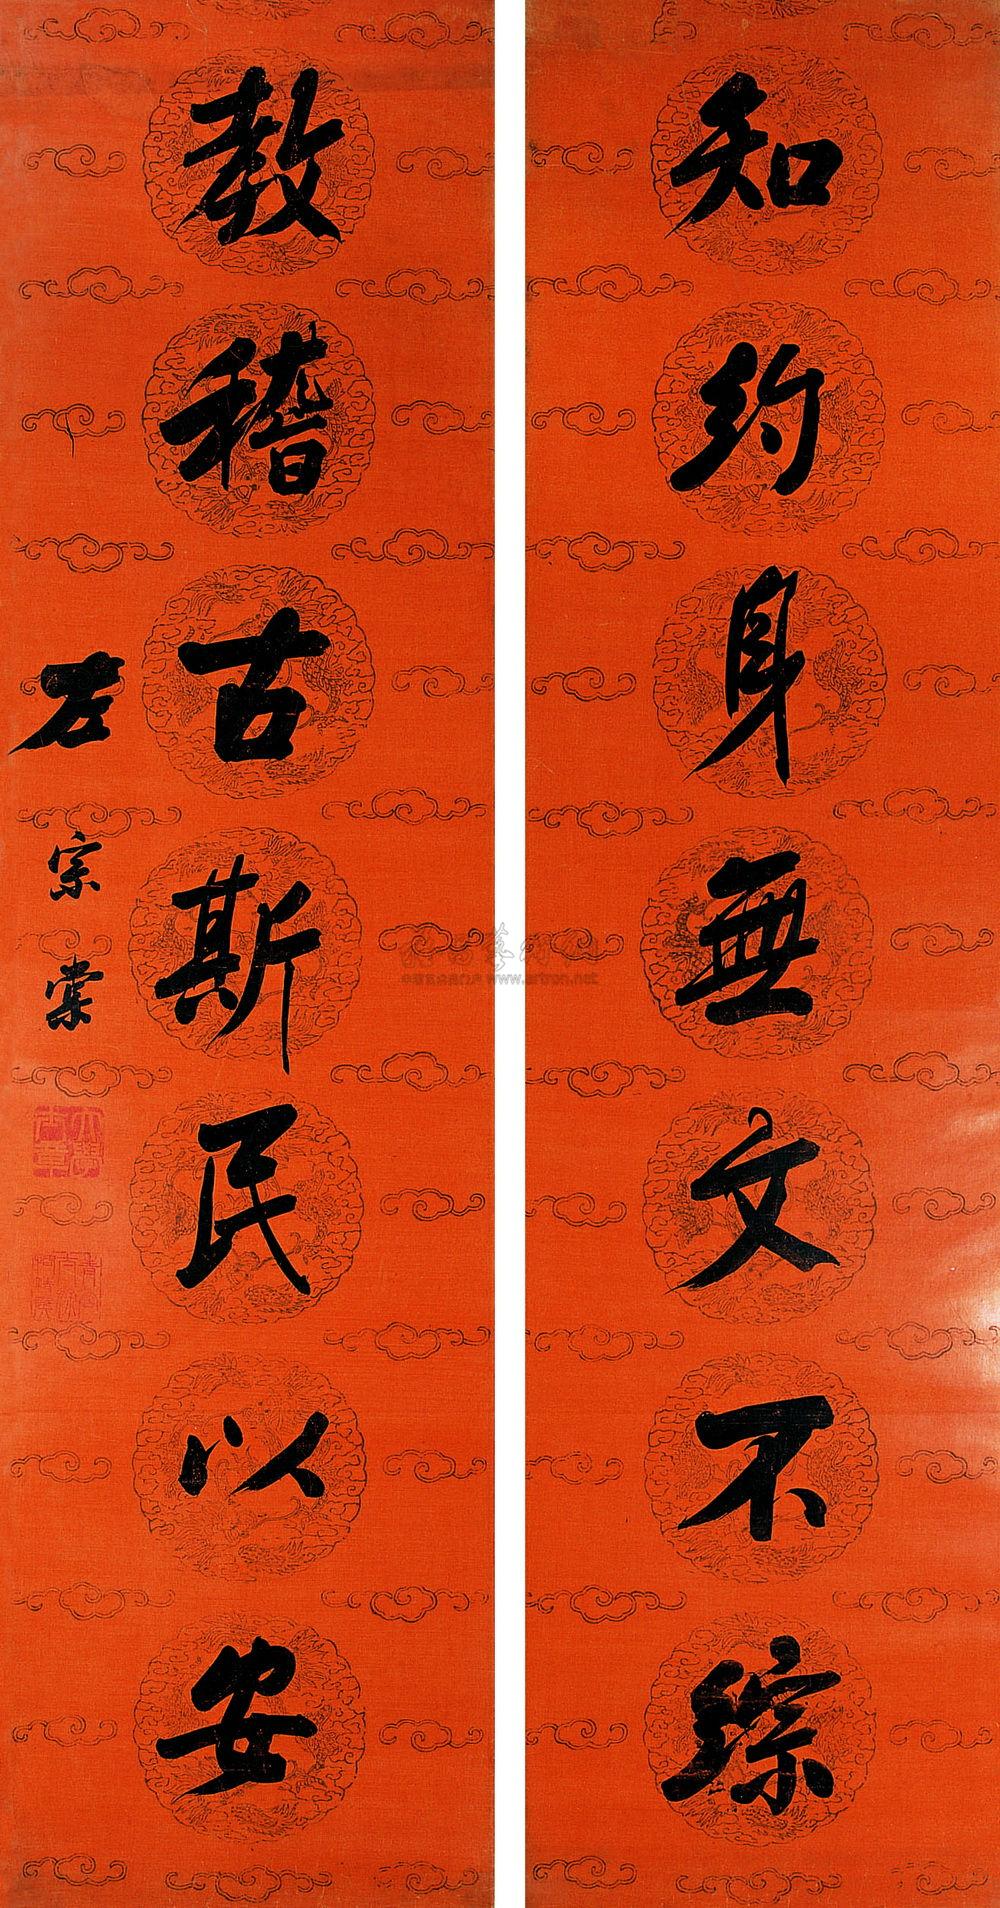 知約身無文不綜
教稽古斯民以安
左宗棠
www.artron.net